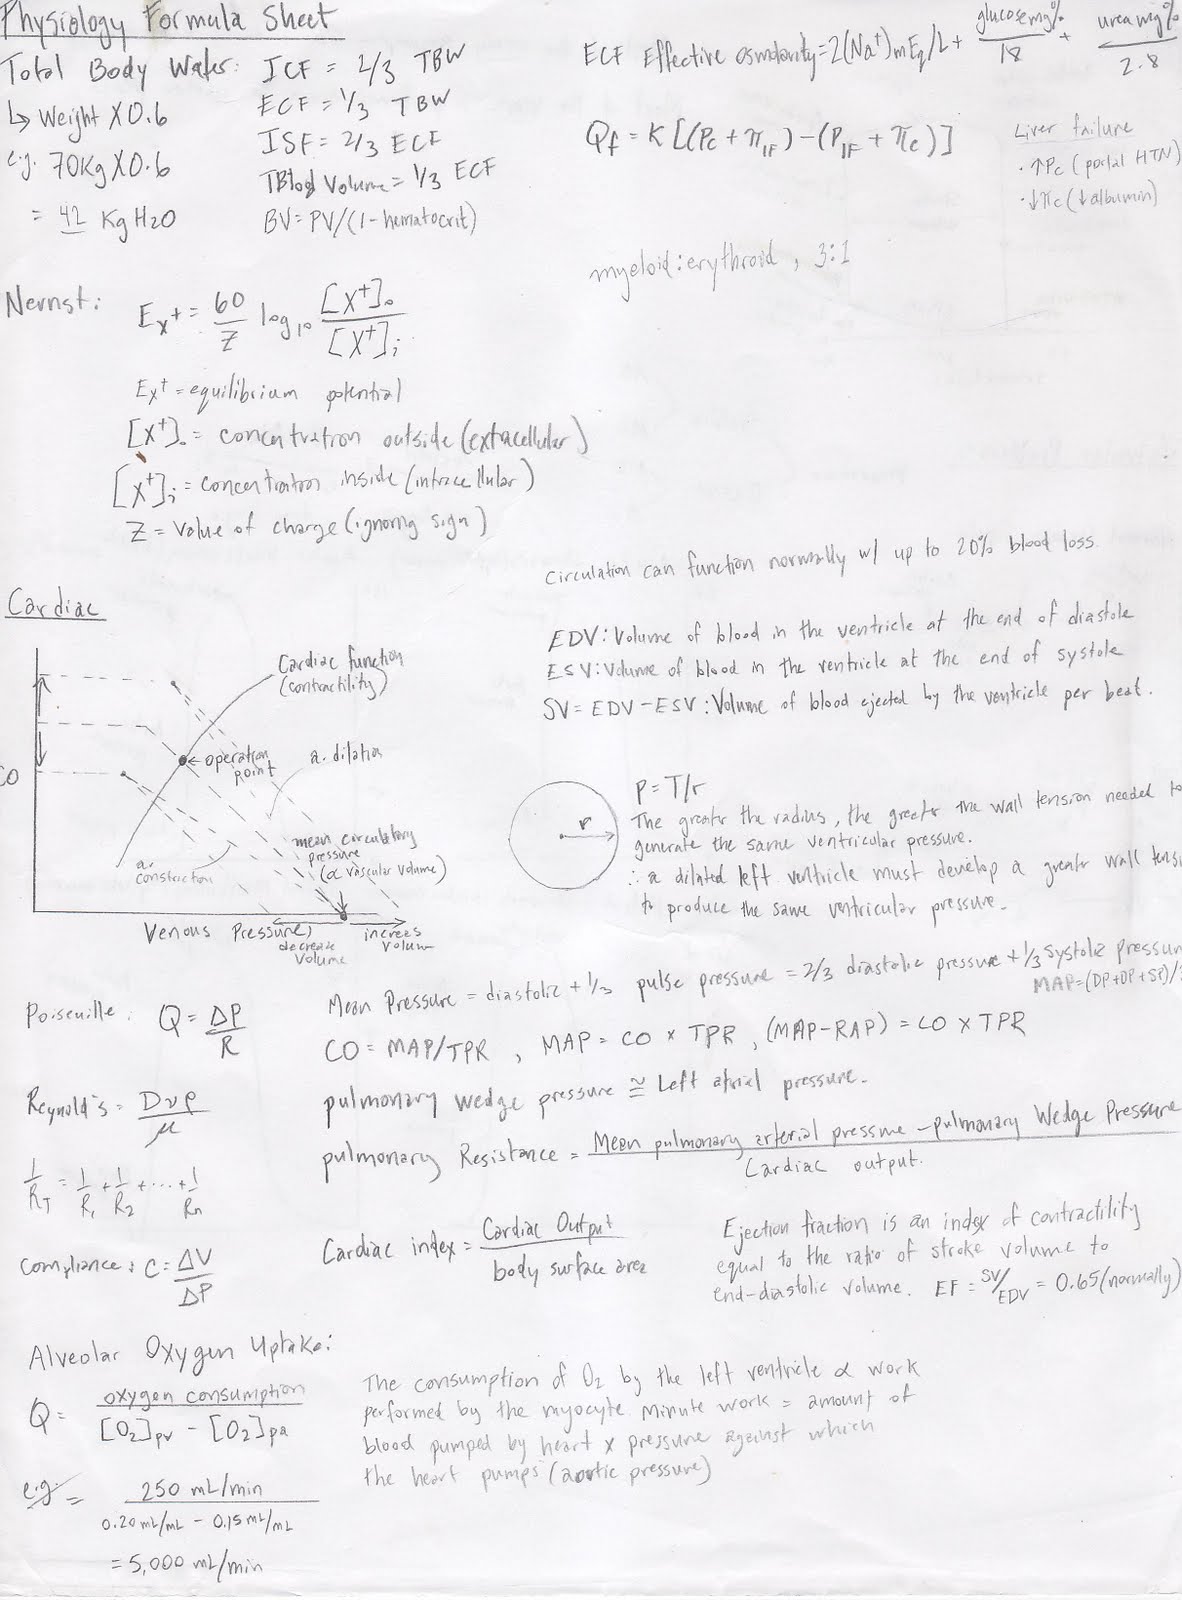 Physiology Formula Sheet
Total Body Water: ICF = 2/3 TBW
↳ Weight X 0.6 ECF = 1/3 TBW
e.g. 70Kg X 0.6 ISF = 2/3 ECF
TBlood Volume = 1/3 ECF
= 42 Kg H2O BV = PV/(1-hematocrit)
ECF Effective osmolarity = 2(Na⁺)mEq/L + glucose mg%/18 + urea mg%/2.8
Qf = K[(Pc + πIF) - (PIF + πc)]
Liver failure
· ↑Pc (portal HTN)
· ↓πc (↓albumin)
myeloid:erythroid, 3:1
Nernst: Ex⁺ = 60/Z log10 [X⁺]o/[X⁺]i
Ex⁺ = equilibrium potential
[X⁺]o = concentration outside (extracellular)
[X⁺]i = concentration inside (intracellular)
Z = value of charge (ignoring sign)
Circulation can function normally w/ up to 20% blood loss.
Cardiac
EDV: Volume of blood in the ventricle at the end of diastole
ESV: Volume of blood in the ventricle at the end of systole
SV = EDV - ESV: Volume of blood ejected by the ventricle per beat.
Cardiac function
(contractility)
← operation
point
a. dilation
CO
mean circulatory
pressure
(α vascular volume)
a.
constriction
Venous Pressure
decrease
volume
increas
volum
r
P = T/r
The greater the radius, the greater the wall tension needed to
generate the same ventricular pressure.
∴ a dilated left ventricle must develop a greater wall tens
to produce the same ventricular pressure.
Mean Pressure = diastolic + 1/3 pulse pressure = 2/3 diastolic pressure + 1/3 systolic Pressur
MAP = (DP+DP+SP)/3
Poiseuille: Q = ΔP/R
CO = MAP/TPR, MAP = CO x TPR, (MAP-RAP) = CO x TPR
Reynold's = Dvρ/μ
pulmonary wedge pressure ≅ Left atrial pressure.
pulmonary Resistance = Mean pulmonary arterial pressure - pulmonary Wedge Pressure/Cardiac output.
1/RT = 1/R1 + 1/R2 + ... + 1/Rn
Compliance: C = ΔV/ΔP
Cardiac index = Cardiac Output/body surface area
Ejection fraction is an index of contractility
equal to the ratio of stroke volume to
end-diastolic volume. EF = SV/EDV = 0.65 (normally)
Alveolar Oxygen Uptake:
Q = oxygen consumption/[O2]pv - [O2]pa
The consumption of O2 by the left ventricle α work
performed by the myocyte. Minute work = amount of
blood pumped by heart x pressure against which
the heart pumps (aortic pressure)
e.g. = 250 mL/min/0.20 mL/mL - 0.15 mL/mL
= 5,000 mL/min